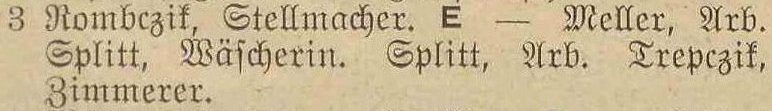 3 Rombczik, Stellmacher. E — Meller, Arb.
Splitt, Wäscherin. Splitt, Arb. Trepczik,
Zimmerer.